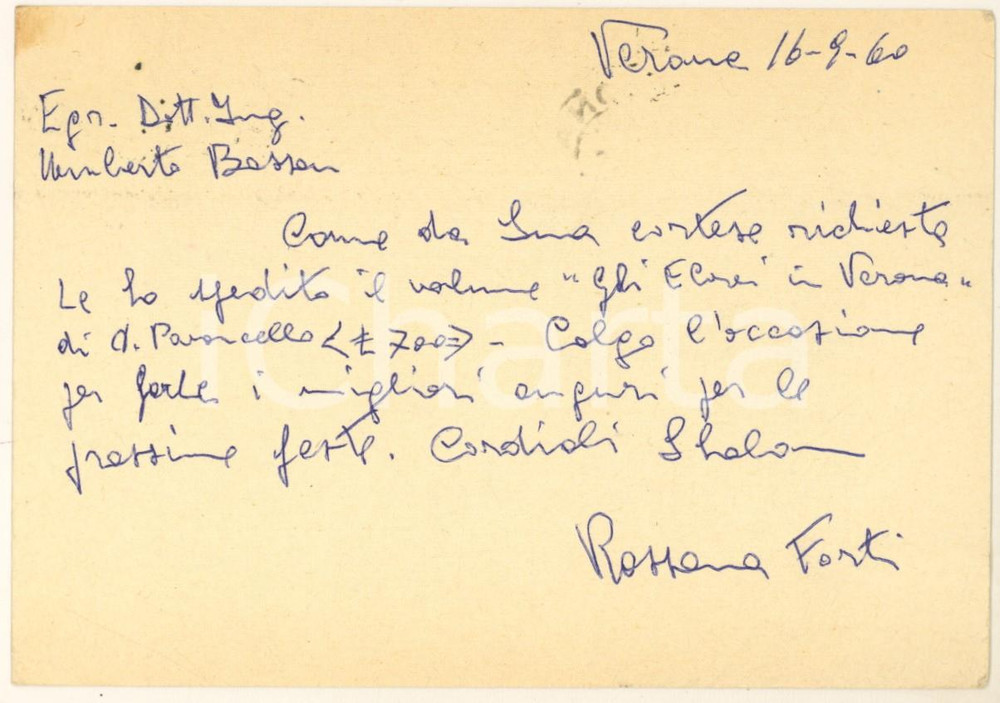 Verona 16-9-60
Egr. Dott. Ing.
Umberto Bassan
Come da Sua cortese richiesta
Le ho spedito il volume "Gli Ebrei in Verona"
di N. Pavoncello <£ 700=> - Colgo l'occasione
per farLe i migliori auguri per le
prossime feste. Cordiali Shalom
Rossana Forti
iCharta